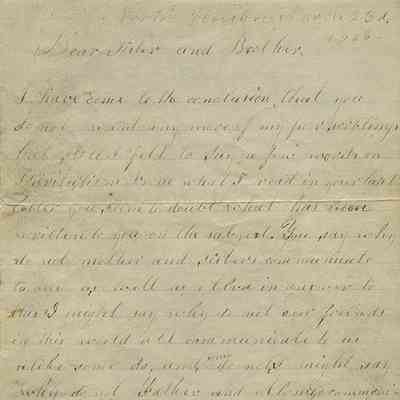 North March 23d,
Dear Sister and Brother,
I have come to the conclusion, that you
do not want any more of my
but I felt to say a few words on
Spiritualism as what I read in your last
letter you seem to doubt what has been
written to you on the subject. You say why
do not mother and sisters communicate
to me as well as in answer to
that I might say why do not our friends
in this world all communicate to us
alike some do, and some do not might say
why do not Father and communi-